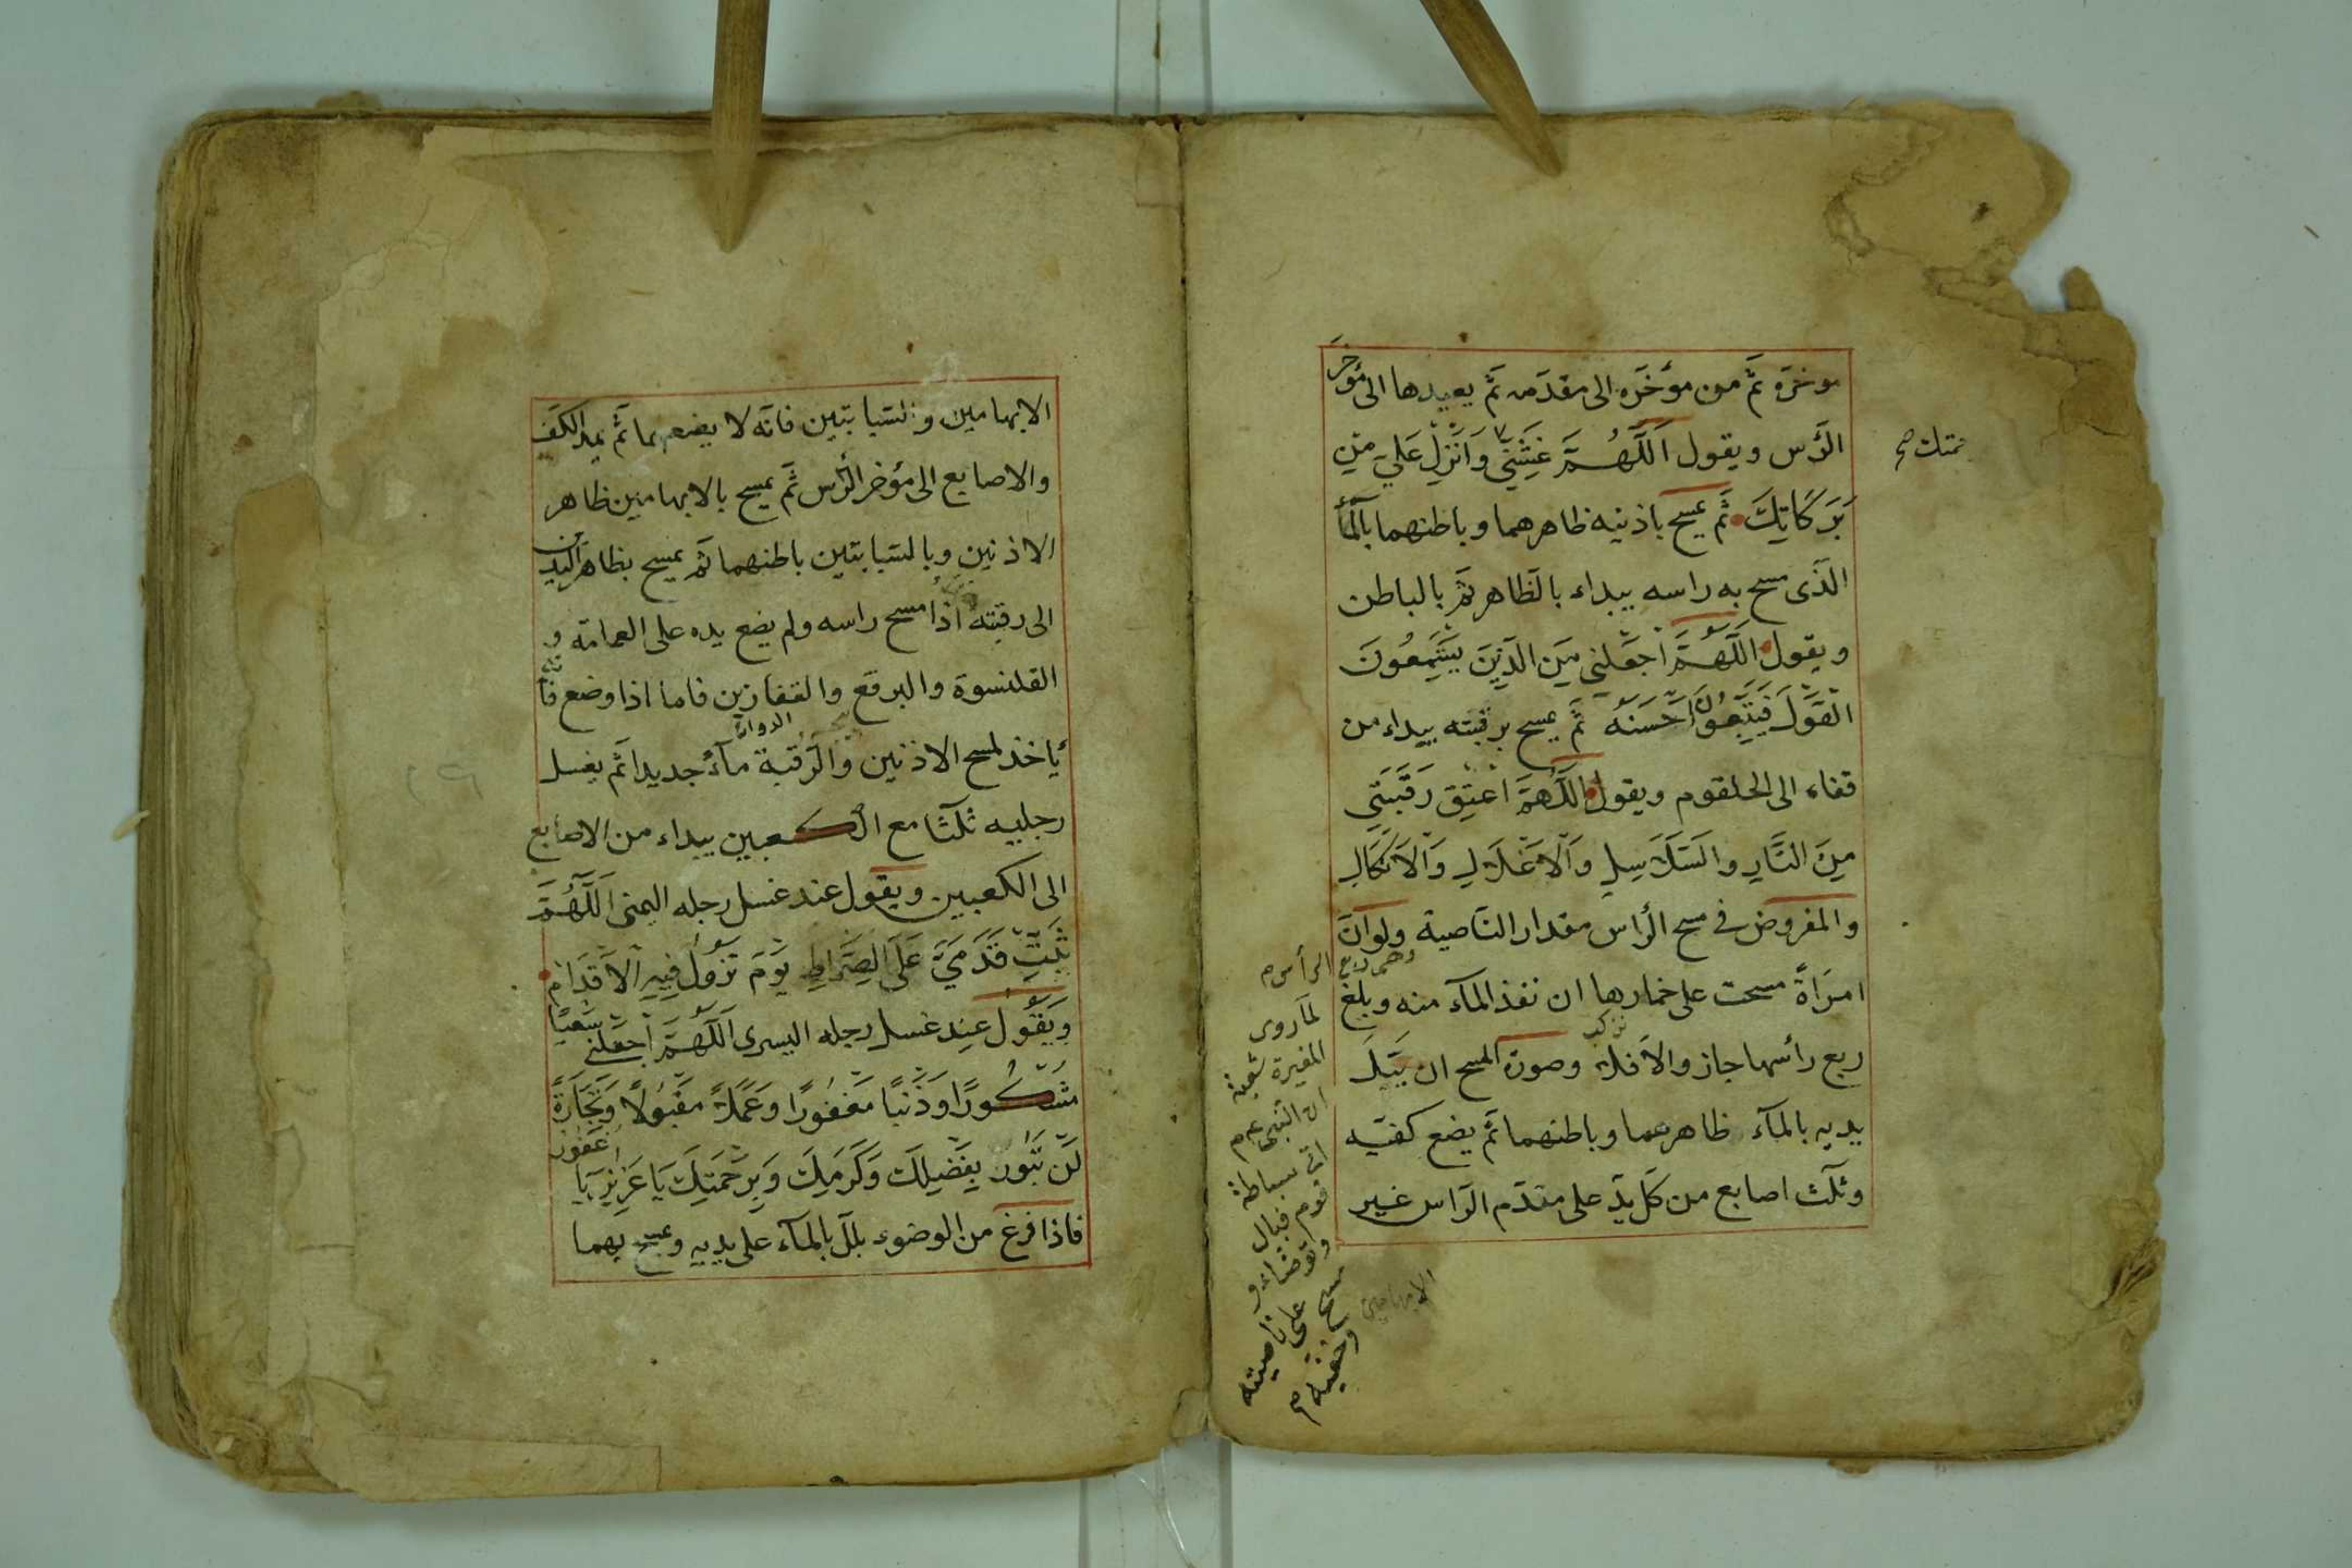 مؤخره ثمّ من مؤخّره الى مقدّمه ثمّ يعيدها الى مؤخّر
الرّأس ويقول اَللّٰهُمَّ غَشِّنِي وَاَنْزِلْ عَلَيَّ مِنْ
بَرَكَاتِكَ ثمّ يمسح باذنيه ظاهرهما وباطنهما بالمآء
الّذى مسح به راسه يبداء بالظّاهر ثمّ بالباطن
ويقول اَللّٰهُمَّ اجْعَلْنِى مِنَ الَّذِينَ يَسْتَمِعُونَ
الْقَوْلَ فَيَتَّبِعُونَ اَحْسَنَهُ ثمّ يمسح برقبته يبداء من
قفاء الى الحلقوم ويقول اَللّٰهُمَّ اعْتِقْ رَقَبَتِي
مِنَ النَّارِ وَالسَّلَاسِلِ وَالْاَغْلَالِ وَالْاَنْكَالِ
والمفروض فى مسح الرّاس مقدار النّاصية ولو انّ
وهى ربع الرأس
امرَاةً مسحت على خمارها ان نفذ المآء منه وبلغ
ربع رأسها جاز والّا فلا وصورة المسح ان يَبُلَّ
يديه بالمآء ظاهرهما وباطنهما ثمّ يضع كفّيه
وثلٰث اصابع من كلّ يدّ على مقدّم الرّاس غير
الابهامين
لما روى
المغيرة شعبة
ان النّبى عم
اتى سباطة
قوم فبال
وتوضّاء و
مسح على ناصيته
وخفّيه
الابهامين والسّبابتين فانّه لا يضعهما ثمّ يمد الكفّ
والاصابع الى مؤخر الرّأس ثمّ يمسح بالابهامين ظاهر
الاذنين وبالسّبابتين باطنهما ثمّ يمسح بظاهر اليدين
الى رقبته اذا مسح راسه ولم يضع يده على العمامة و
القلنسوة والبرقع والقفازين فاما اذا وضع فانّه
يأخذ لمسح الاذنين والرّقبة مآءً جديدا ثم يغسل
رجليه ثلٰثا مع الكعبين يبداء من الاصابع
الى الكعبين ويقول عند غسل رجله اليمنى اَللّٰهُمَّ
ثَبِّتْ قَدَمَيَّ عَلَى الصِّرَاطِ يَوْمَ تَزُولُ فِيهِ الْاَقْدَامُ
وَيَقُولُ عند غسل رجله اليسرى اَللّٰهُمَّ اجْعَلْنِي سَعْيًا
مَشْكُورًا وَذَنْبًا مَغْفُورًا وَعَمَلًا مَقْبُولًا وَتِجَارَةً
لَنْ تَبُورَ بِفَضْلِكَ وَكَرَمِكَ وَبِرَحْمَتِكَ يَا عَزِيزُ يَا غَفُورُ
فاذا فرغ من الوضوء بلل بالمآء على يديه ويمسح بهما